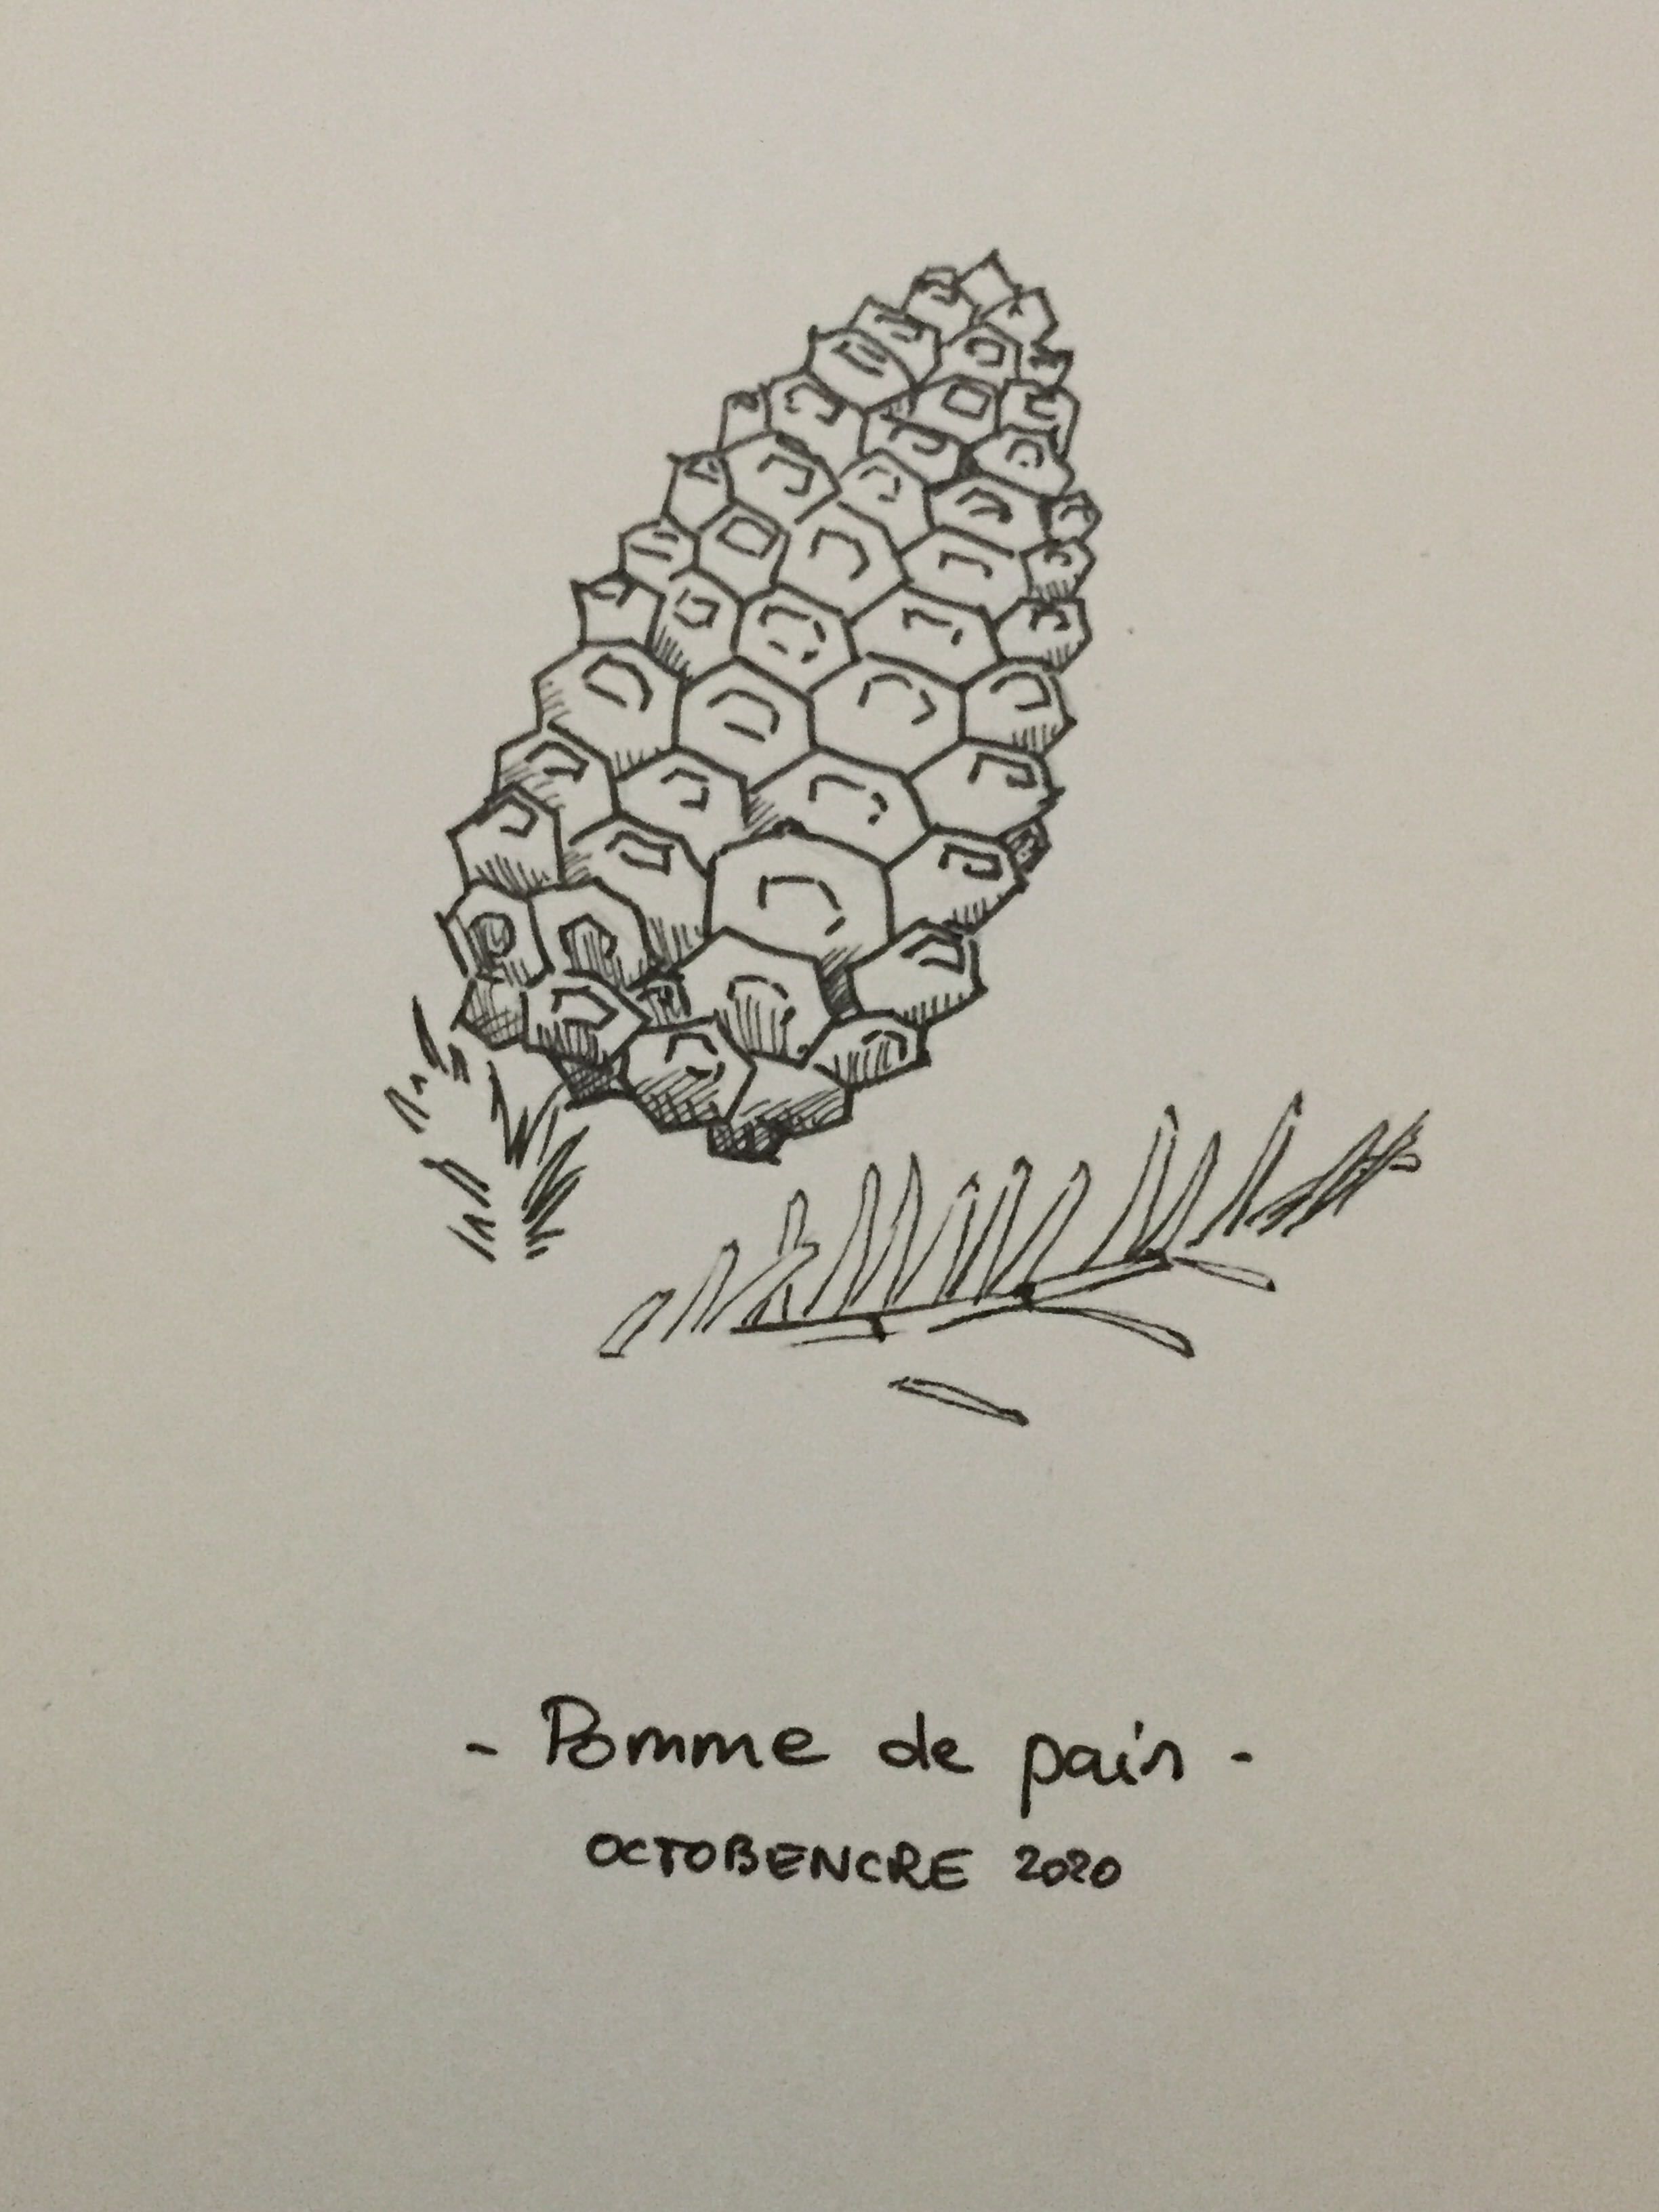 - Pomme de pain -
OCTOBENCRE 2020